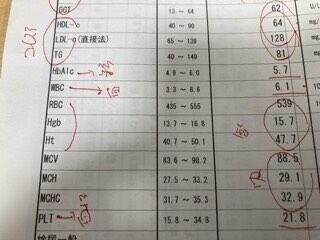 GGT 13 ~ 64 62 U/L
HDL-c 40 ~ 90 64 mg/
LDL-c(直接法) 65 ~ 139 128 mg/
TG 40 ~ 149 81
HbA1c 4.9 ~ 6.0 5.7
WBC 3.3 ~ 8.6 6.1
RBC 435 ~ 555 539
Hgb 13.7 ~ 16.8 15.7
Ht 40.7 ~ 50.1 47.7
MCV 83.6 ~ 98.2 88.5
MCH 27.5 ~ 33.2 29.1
MCHC 31.7 ~ 35.3 32.9
PLT 15.8 ~ 34.8 21.8